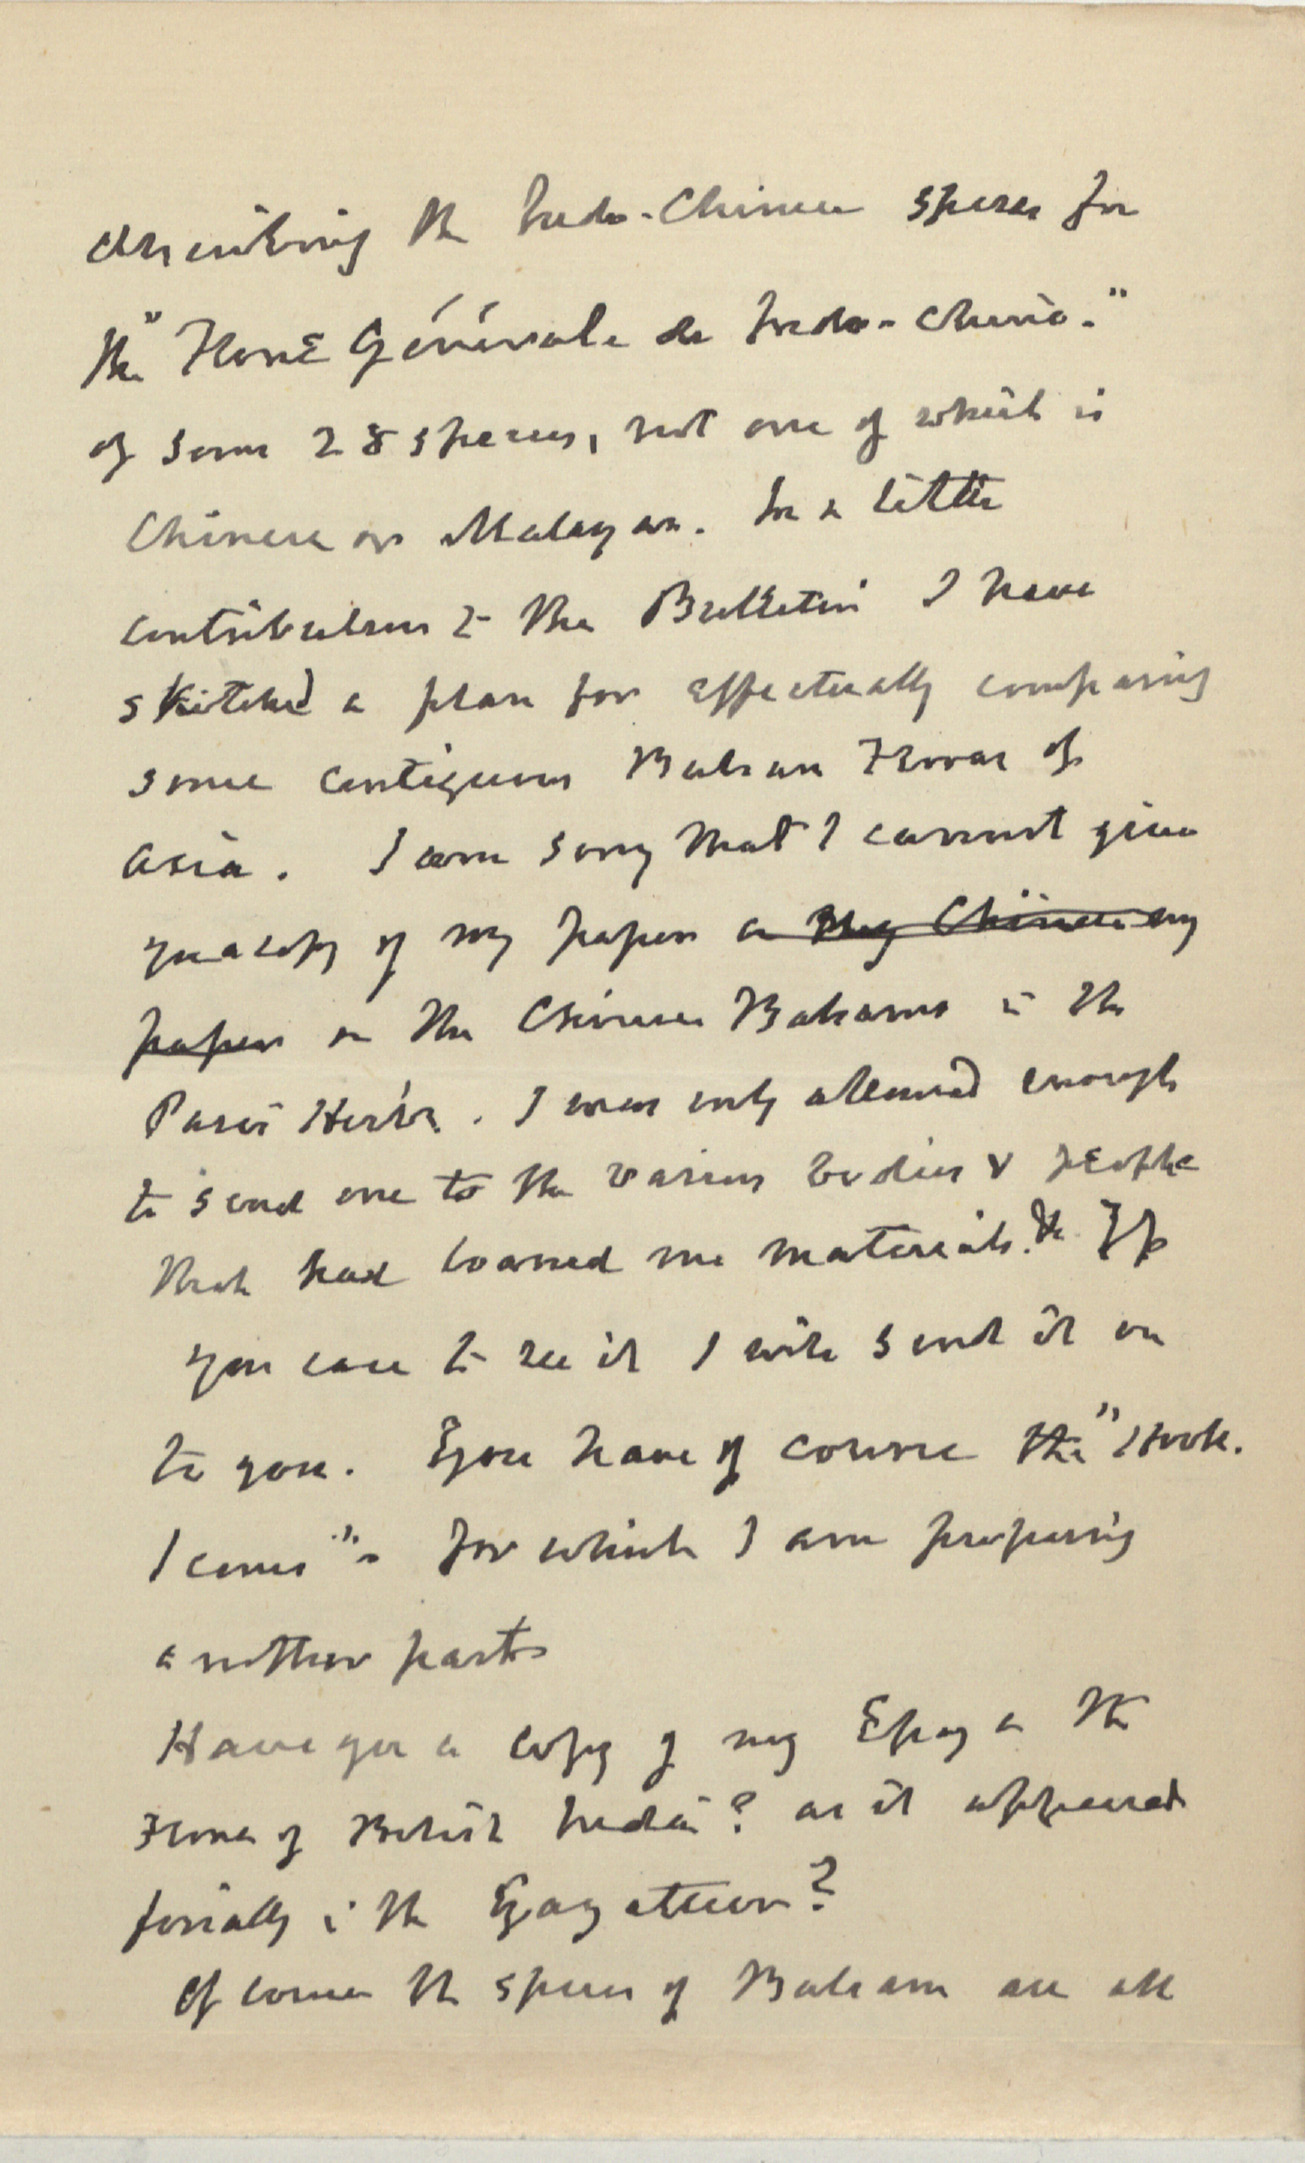 describing the Indo-Chinese species for
the "Flore Générale de Indo-Chine."
of some 28 species, not one of which is
Chinese or Malayan. In a little
contribution to the Bulletin I have
sketched a plan for effectually comparing
some contiguous Balsam Floras of
Asia. I am sorry that I cannot give
you a copy of my paper on my Chinese my
paper on the Chinese Balsams in the
Paris Herb. I was only allowed enough
to send one to the various bodies & people
that had loaned me materials. &c If
you care to see it I will send it on
to you. You have of course the "Hook.
Icones" for which I am preparing
another part
Have you a copy of my Essay on the
Flora of British India? as it appeared
finally in the Gazetteer?
Of course the species of Balsam are all